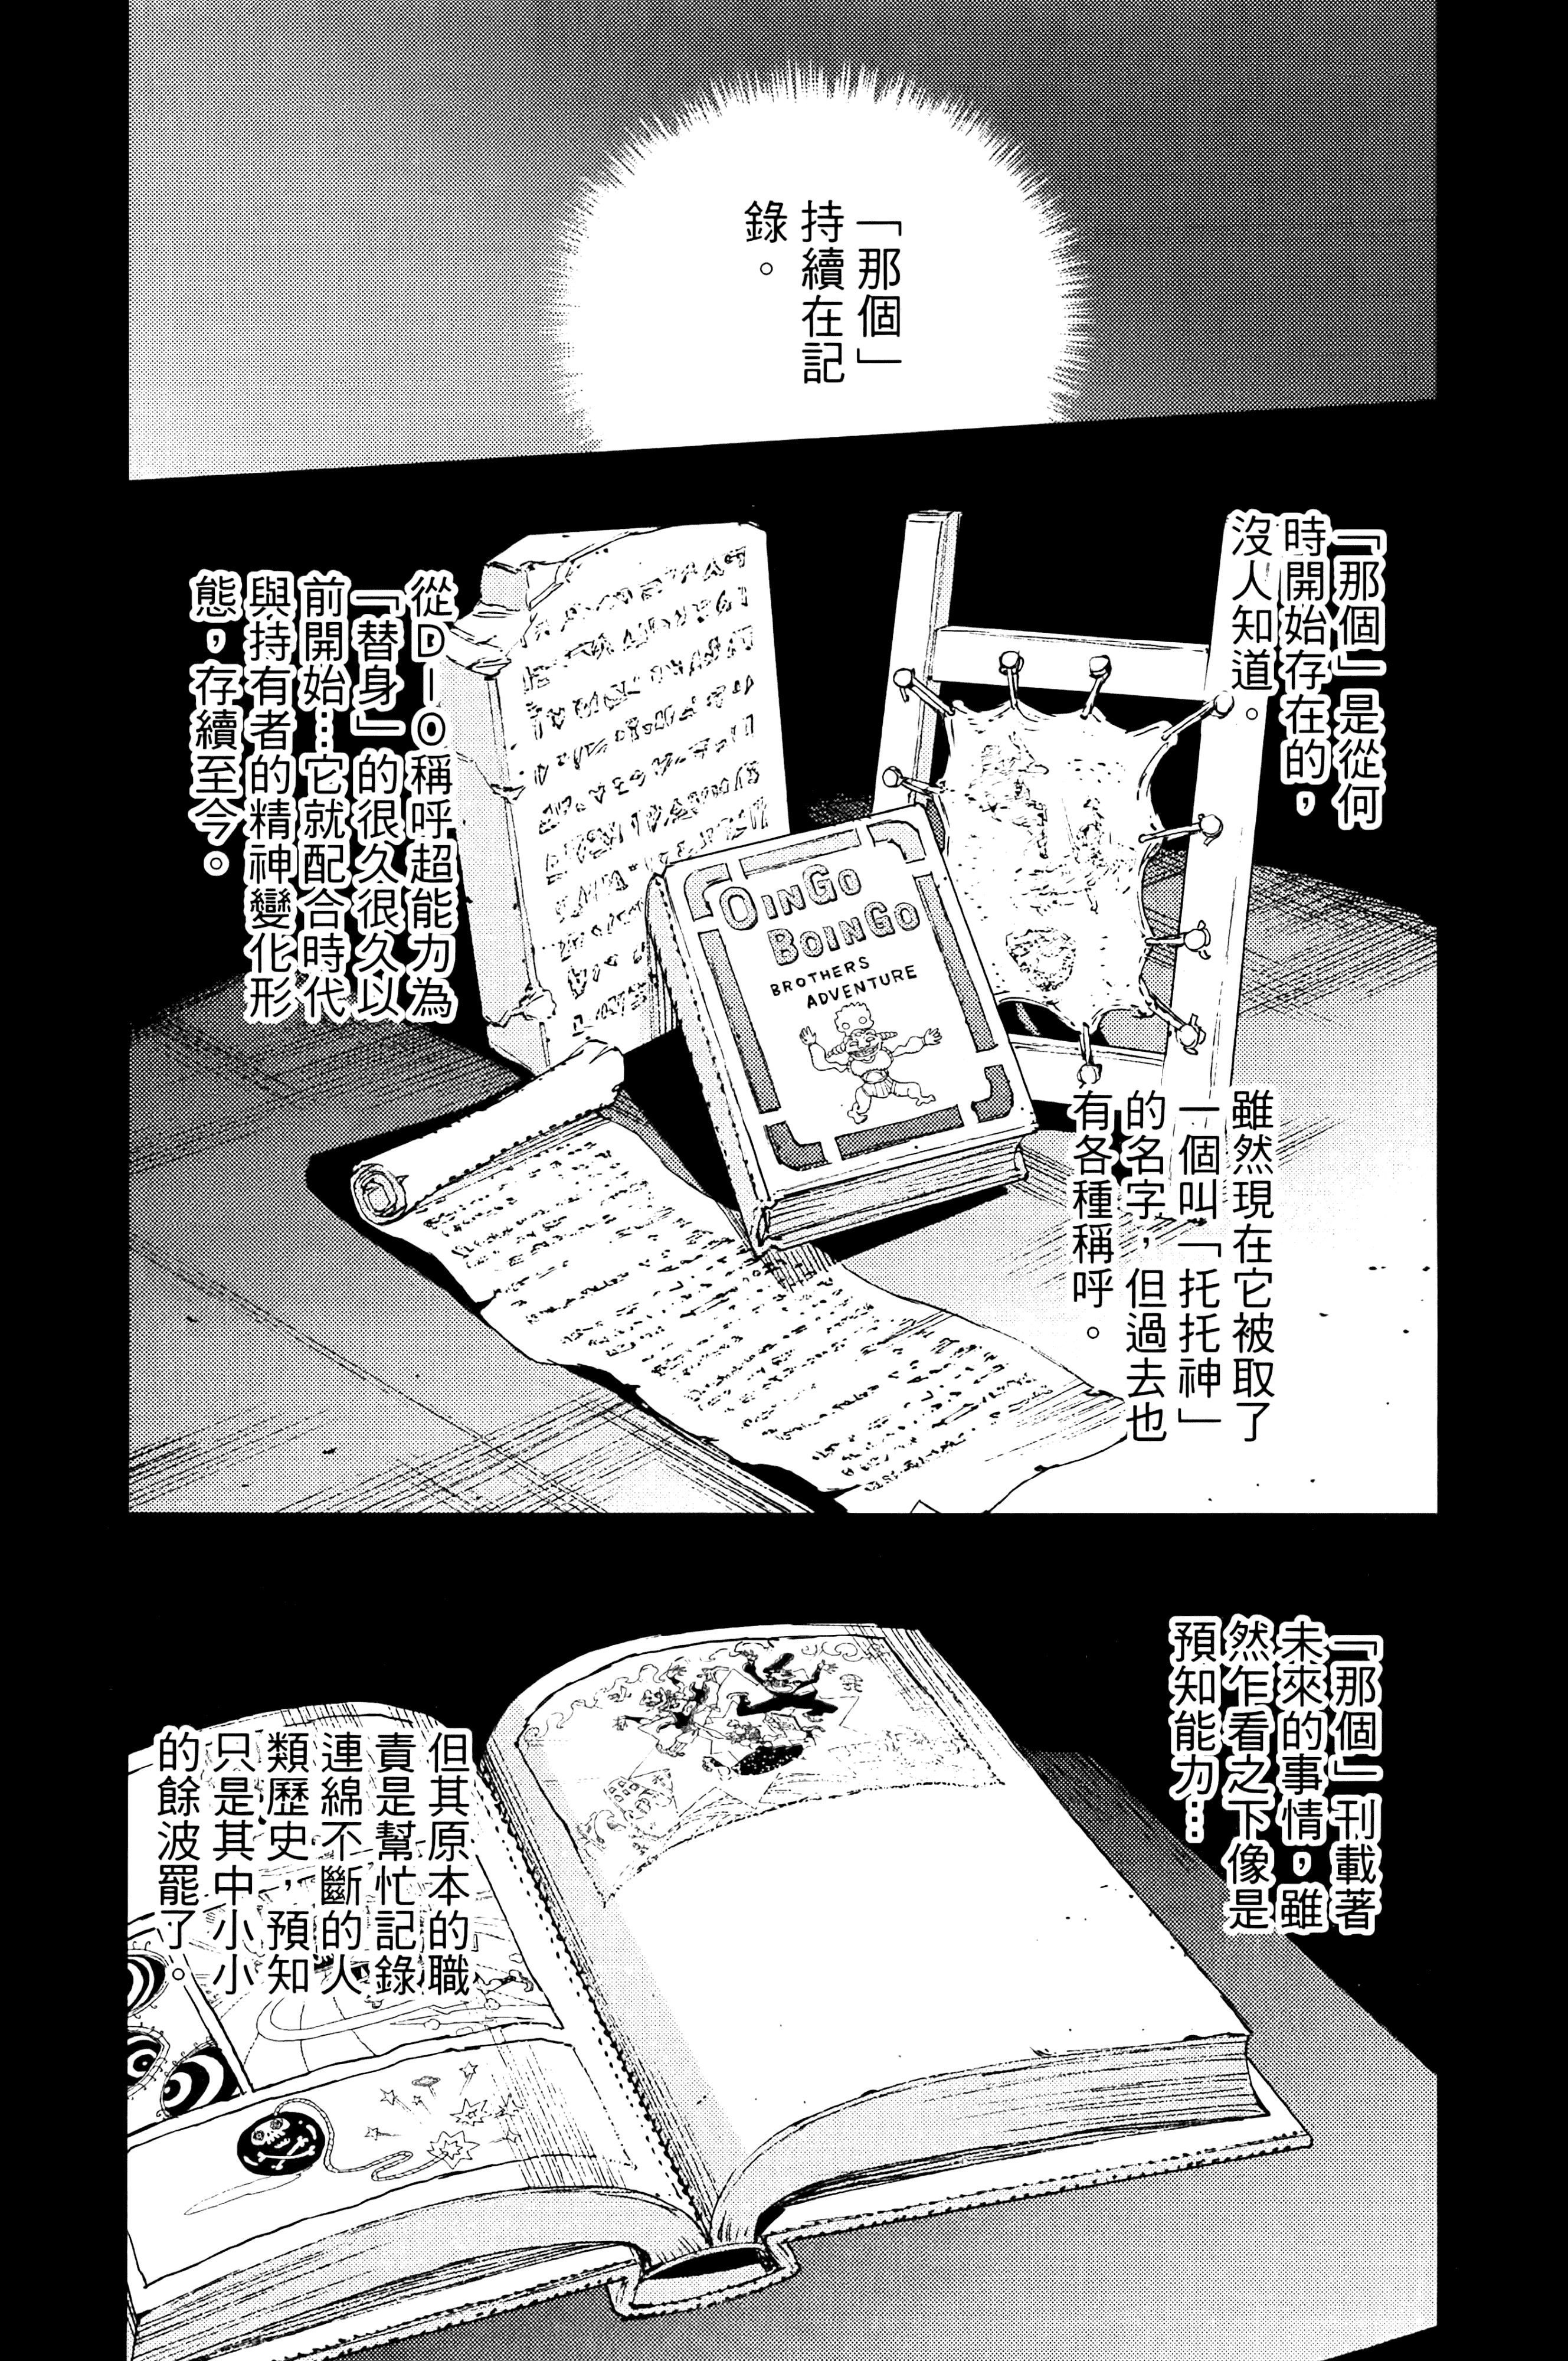 「那個」
持續在記
錄。
「那個」是從何
時開始存在的，
沒人知道。
從DIO稱呼超能力為
「替身」的很久很久以
前開始…它就配合時代
與持有者的精神變化形
態，存續至今。
OINGO
BOINGO
BROTHERS
ADVENTURE
雖然現在它被取了
一個叫「托托神」
的名字，但過去也
有各種稱呼。
「那個」刊載著
未來的事情，雖
然乍看之下像是
預知能力…
但其原本的職
責是幫忙記錄
連綿不斷的人
類歷史，預知
只是其中小小
的餘波罷了。